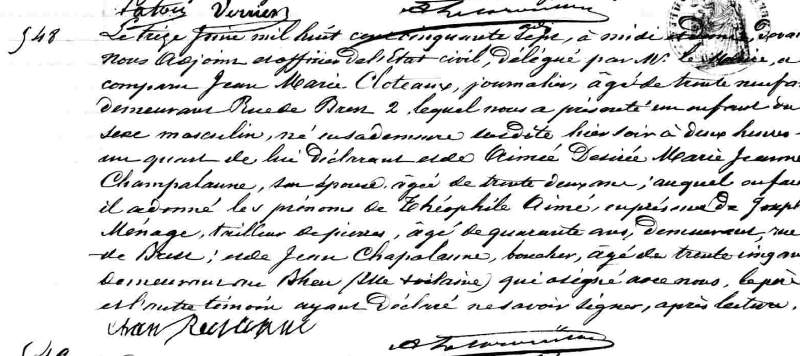 548
Le treize Juin mil huit cent cinquante sept, à midi et demi, devant
Nous Adjoint et officier de l'Etat civil, délégué par Mr. le Maire, a
comparu Jean Marie Cloteaux, journalier, âgé de trente neuf ans
demeurant Rue de Brest 2, lequel nous a présenté un enfant du
sexe masculin, né en sa demeure susdite hier soir à deux heures
un quart de lui déclarant et de Aimée Desirée Marie Jeanne
Champalaune, son épouse, âgée de trente deux ans; auquel enfant
il a donné les prénoms de Théophile Aimé, en présence de Joseph
Ménage, tailleur de pierres, âgé de quarante ans, demeurant, rue
de Brest; et de Jean Chapalaune, boucher, âgé de trente cinq ans
demeurant au Rheu (Ille & vilaine) qui a signé avec nous, le père
et l'autre témoin ayant déclaré ne savoir signer, après lecture.